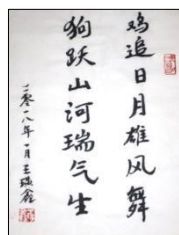 鸡追日月雄风舞
狗跃山河瑞气生
二零一八年一月王瑛鑫